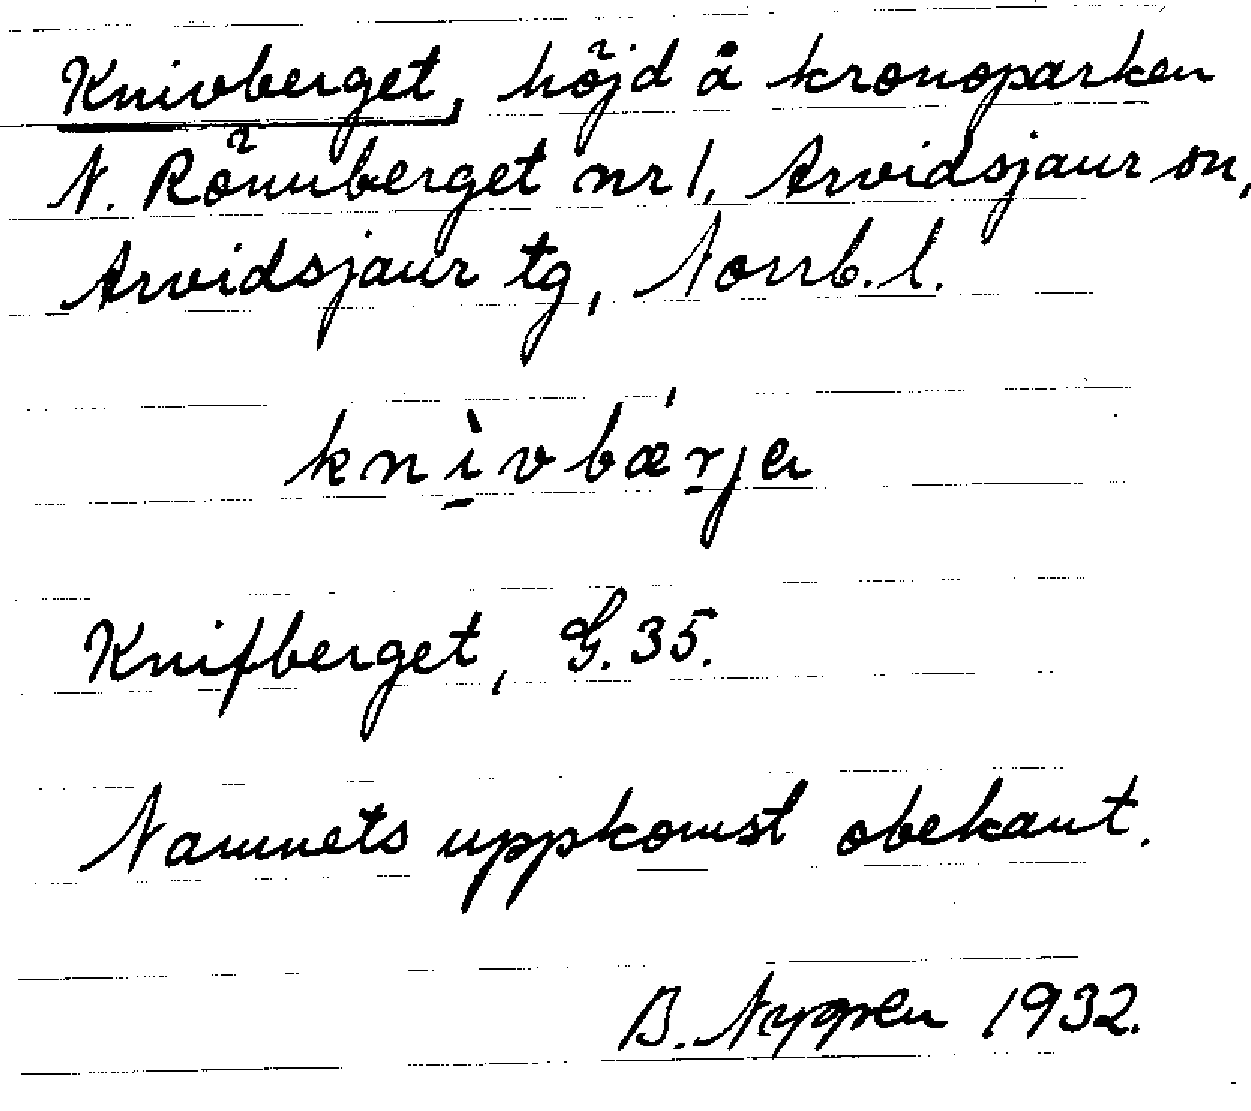 Knivberget, höjd å kronoparken
N. Rönnberget nr 1, Arvidsjaur sn,
Arvidsjaur tg, Norrb. l.
knì̱vbǽṟja
Knifberget, G. 35.
Namnets uppkomst obekant.
B. 1932.